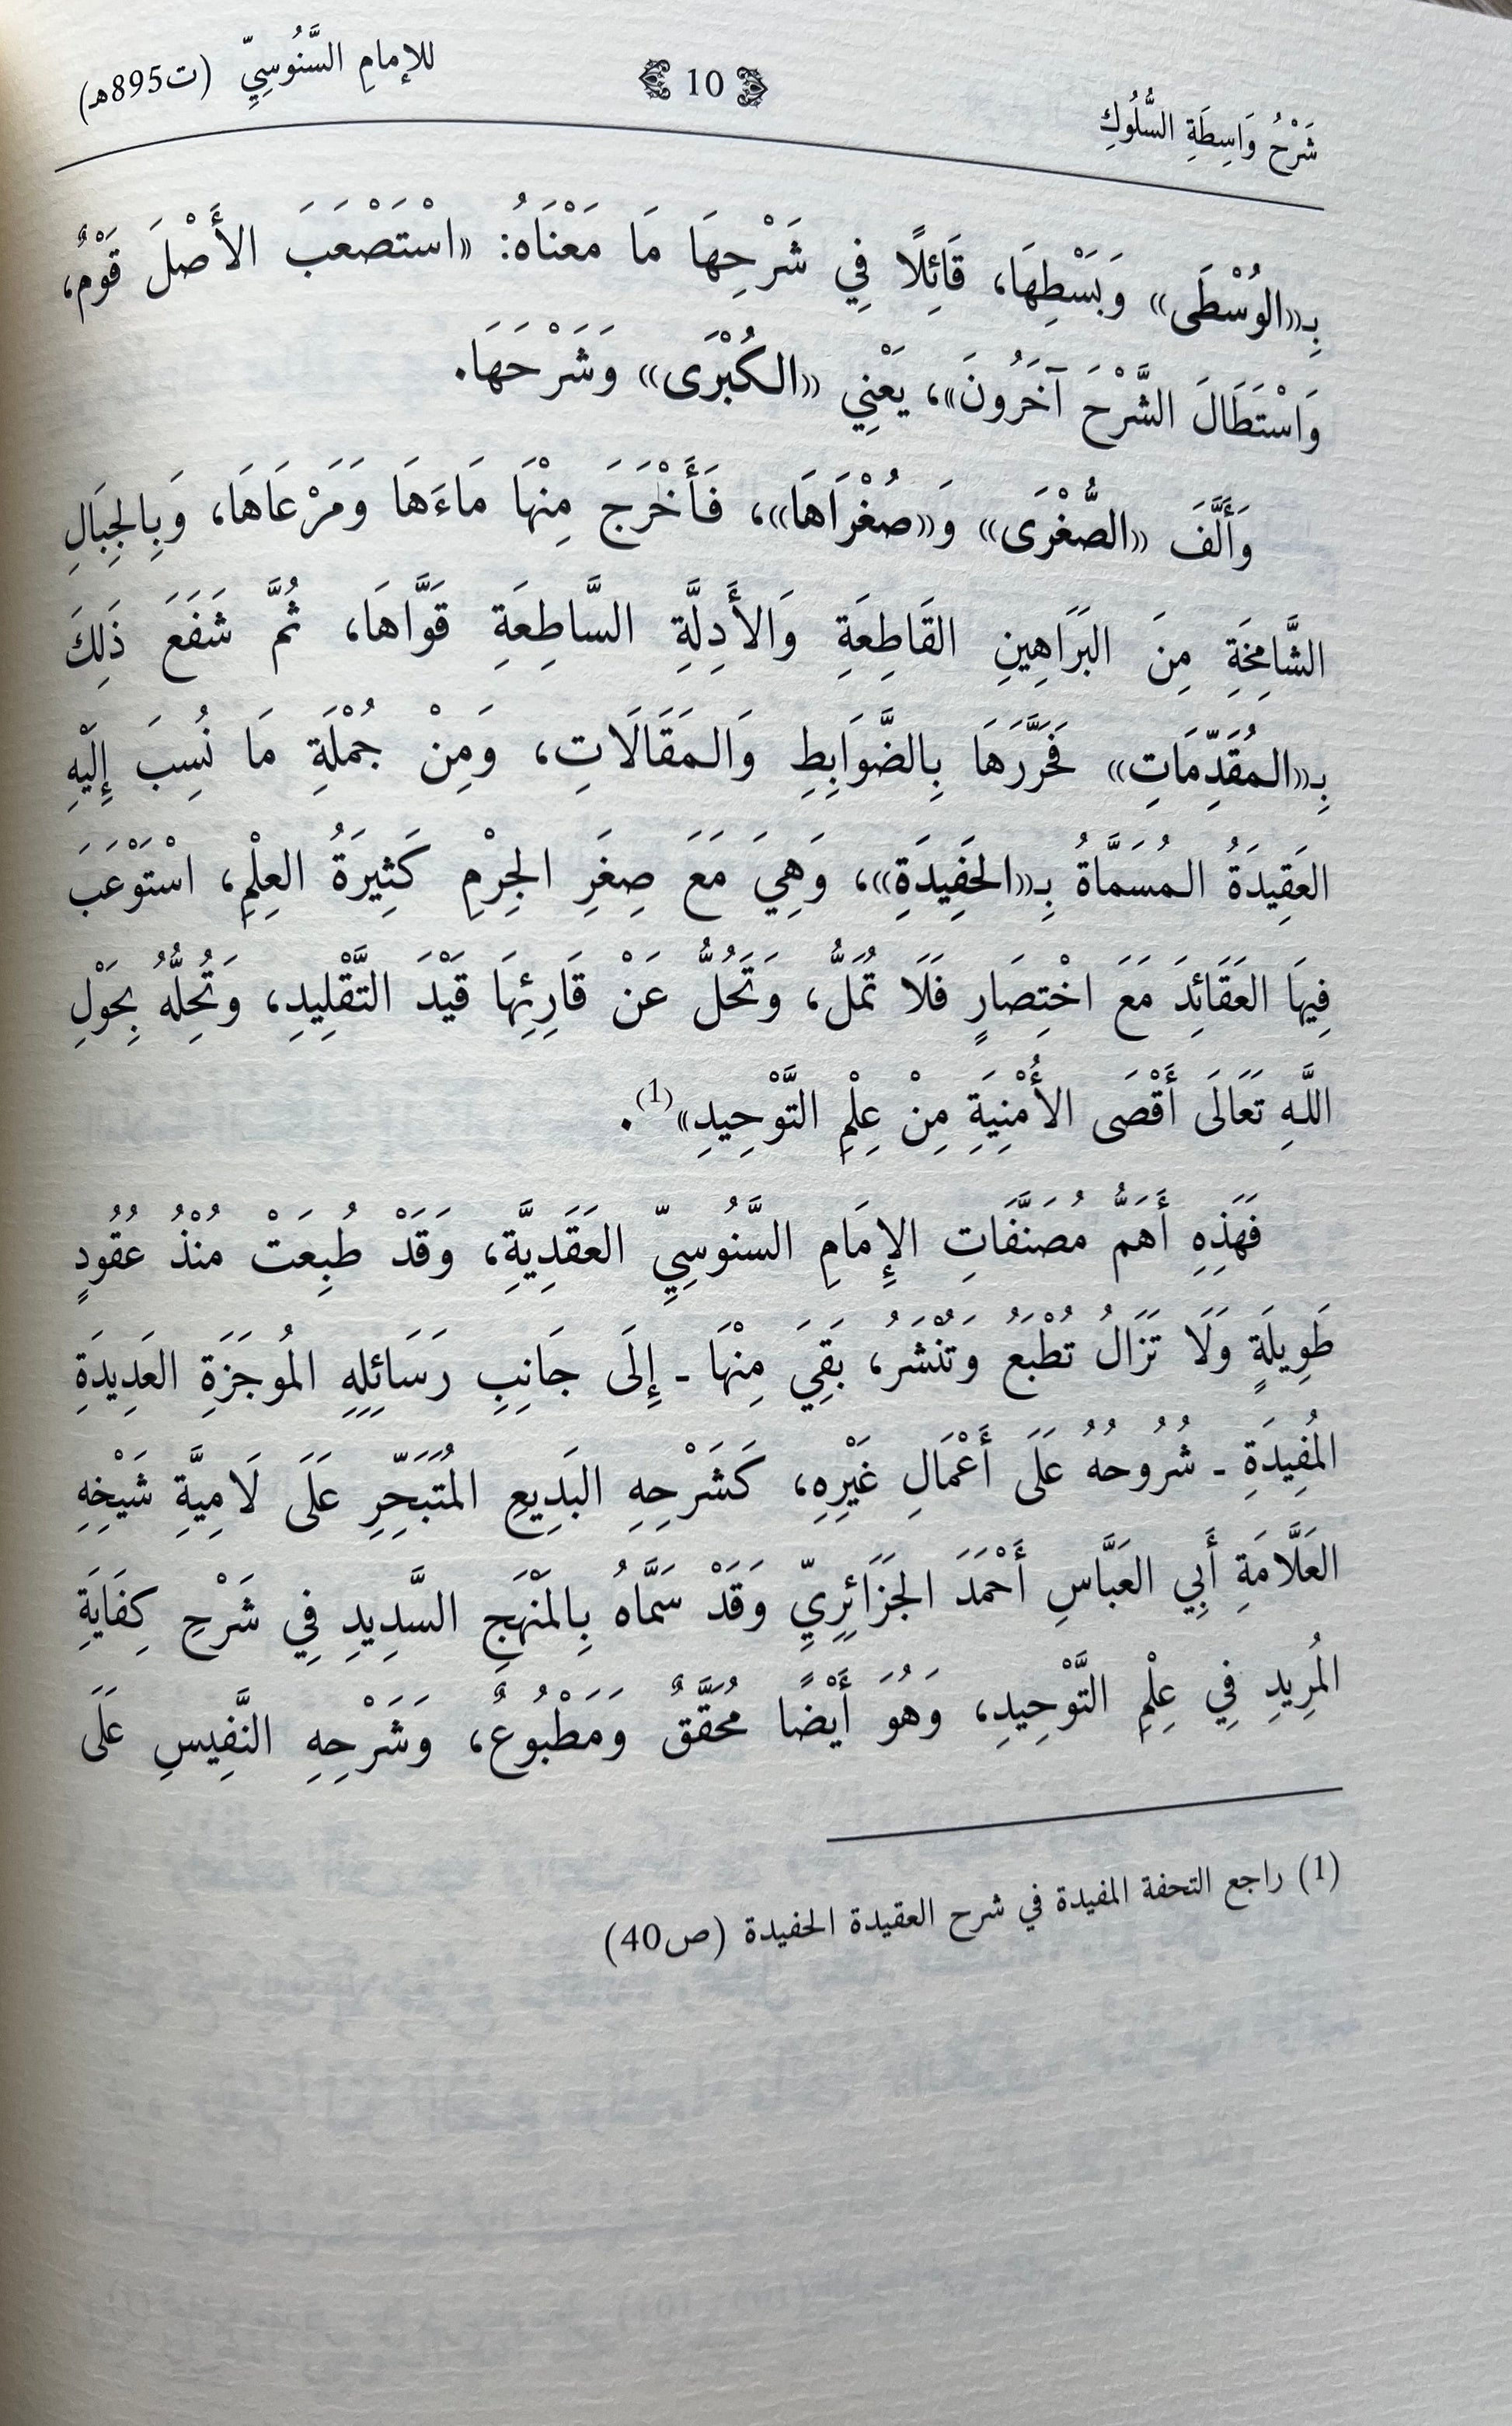 شَرْحُ وَاسِطَةِ السُّلُوكِ
10
للإمامِ السَّنُوسِيِّ (ت895هـ)
بِـ«الوُسْطَى» وَبَسْطِهَا، قَائِلًا فِي شَرْحِهَا مَا مَعْنَاهُ: «اسْتَصْعَبَ الأَصْلَ قَوْمٌ،
وَاسْتَطَالَ الشَّرْحَ آخَرُونَ»، يَعْنِي «الكُبْرَى» وَشَرْحَهَا.
وَأَلَّفَ «الصُّغْرَى» وَ«صُغْرَاهَا»، فَأَخْرَجَ مِنْهَا مَاءَهَا وَمَرْعَاهَا، وَبِالجِبَالِ
الشَّامِخَةِ مِنَ البَرَاهِينِ القَاطِعَةِ وَالأَدِلَّةِ السَّاطِعَةِ قَوَّاهَا، ثُمَّ شَفَعَ ذَلِكَ
بِـ«المُقَدِّمَاتِ» فَحَرَّرَهَا بِالضَّوَابِطِ وَالمَقَالَاتِ، وَمِنْ جُمْلَةِ مَا نُسِبَ إِلَيْهِ
العَقِيدَةُ المُسَمَّاةُ بِـ«الحَفِيدَةِ»، وَهِيَ مَعَ صِغَرِ الجِرْمِ كَثِيرَةُ العِلْمِ، اسْتَوْعَبَ
فِيهَا العَقَائِدَ مَعَ اخْتِصَارٍ فَلَا تُمَلُّ، وَتَحُلُّ عَنْ قَارِئِهَا قَيْدَ التَّقْلِيدِ، وَتُحِلُّهُ بِحَوْلِ
اللَّهِ تَعَالَى أَقْصَى الأُمْنِيَةِ مِنْ عِلْمِ التَّوْحِيدِ»(1).
فَهَذِهِ أَهَمُّ مُصَنَّفَاتِ الإِمَامِ السَّنُوسِيِّ العَقَدِيَّةِ، وَقَدْ طُبِعَتْ مُنْذُ عُقُودٍ
طَوِيلَةٍ وَلَا تَزَالُ تُطْبَعُ وَتُنْشَرُ، بَقِيَ مِنْهَا ـ إِلَى جَانِبِ رَسَائِلِهِ المُوجَزَةِ العَدِيدَةِ
المُفِيدَةِ ـ شُرُوحُهُ عَلَى أَعْمَالِ غَيْرِهِ، كَشَرْحِهِ البَدِيعِ المُتَبَحِّرِ عَلَى لَامِيَّةِ شَيْخِهِ
العَلَّامَةِ أَبِي العَبَّاسِ أَحْمَدَ الجَزَائِرِيِّ وَقَدْ سَمَّاهُ بِالمَنْهَجِ السَّدِيدِ فِي شَرْحِ كِفَايَةِ
المُرِيدِ فِي عِلْمِ التَّوْحِيدِ، وَهُوَ أَيْضًا مُحَقَّقٌ وَمَطْبُوعٌ، وَشَرْحِهِ النَّفِيسِ عَلَى
(1) راجع التحفة المفيدة في شرح العقيدة الحفيدة (ص40)